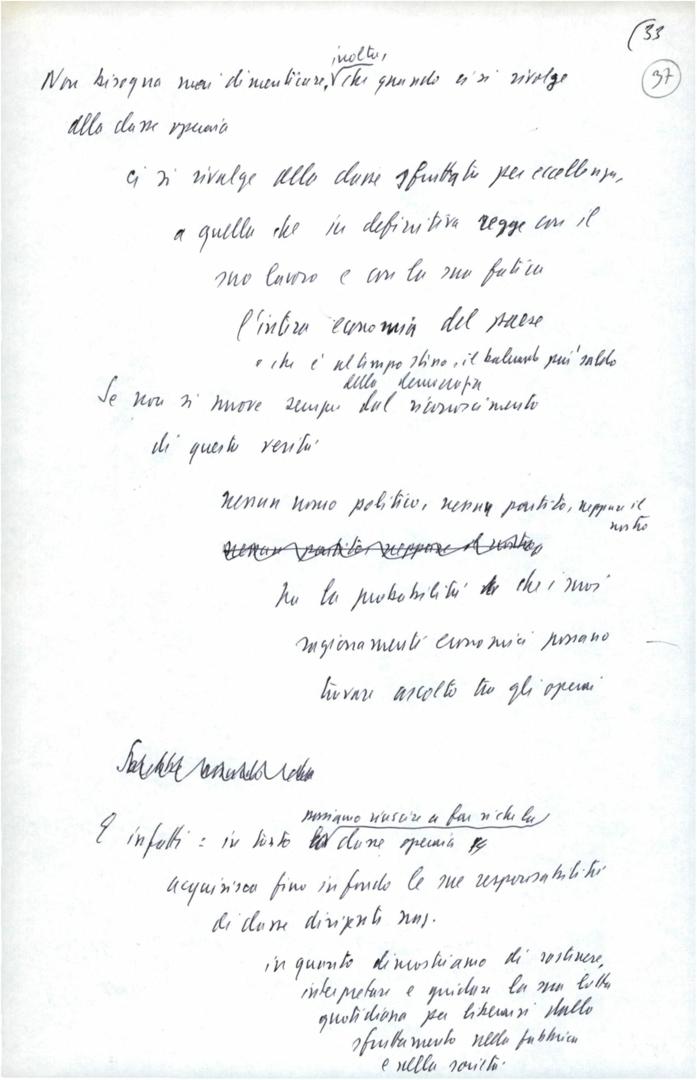 (33
37
inoltre,
Non bisogna mai dimenticare, che quando ci si rivolge
alla classe operaia
ci si rivolge alla classe sfruttata per eccellenza,
a quella che in definitiva regge con il
suo lavoro e con la sua fatica
l'intera economia del paese
e che è al tempo stesso, il baluardo più saldo
della democrazia
Se non si muove sempre dal riconoscimento
di questa verità
nessun uomo politico, nessun partito, neppure il
nostro
nessun partito neppure il nostro
ha la probabilità che i suoi
ragionamenti economici possano
trovare ascolto tra gli operai
possiamo riuscire a far sì che la
E infatti: in tanto la classe operaia
acquisisca fino in fondo le sue responsabilità
di classe dirigente naz.
in quanto dimostriamo di sostenere,
interpretare e guidare la sua lotta
quotidiana per liberarsi dallo
sfruttamento nella fabbrica
e nella società.